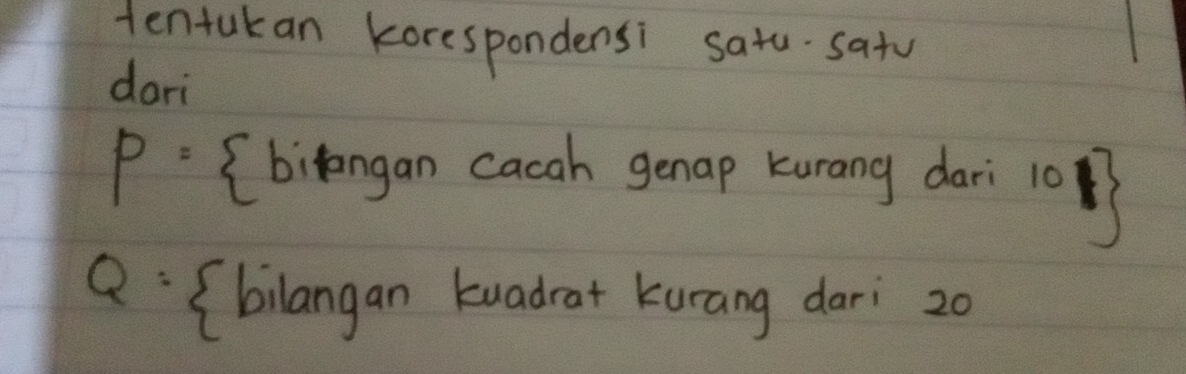 tentukan korespondensi satu-satu
dari
P = {bilangan cacah genap kurang dari 10}
Q = {bilangan kuadrat kurang dari 20